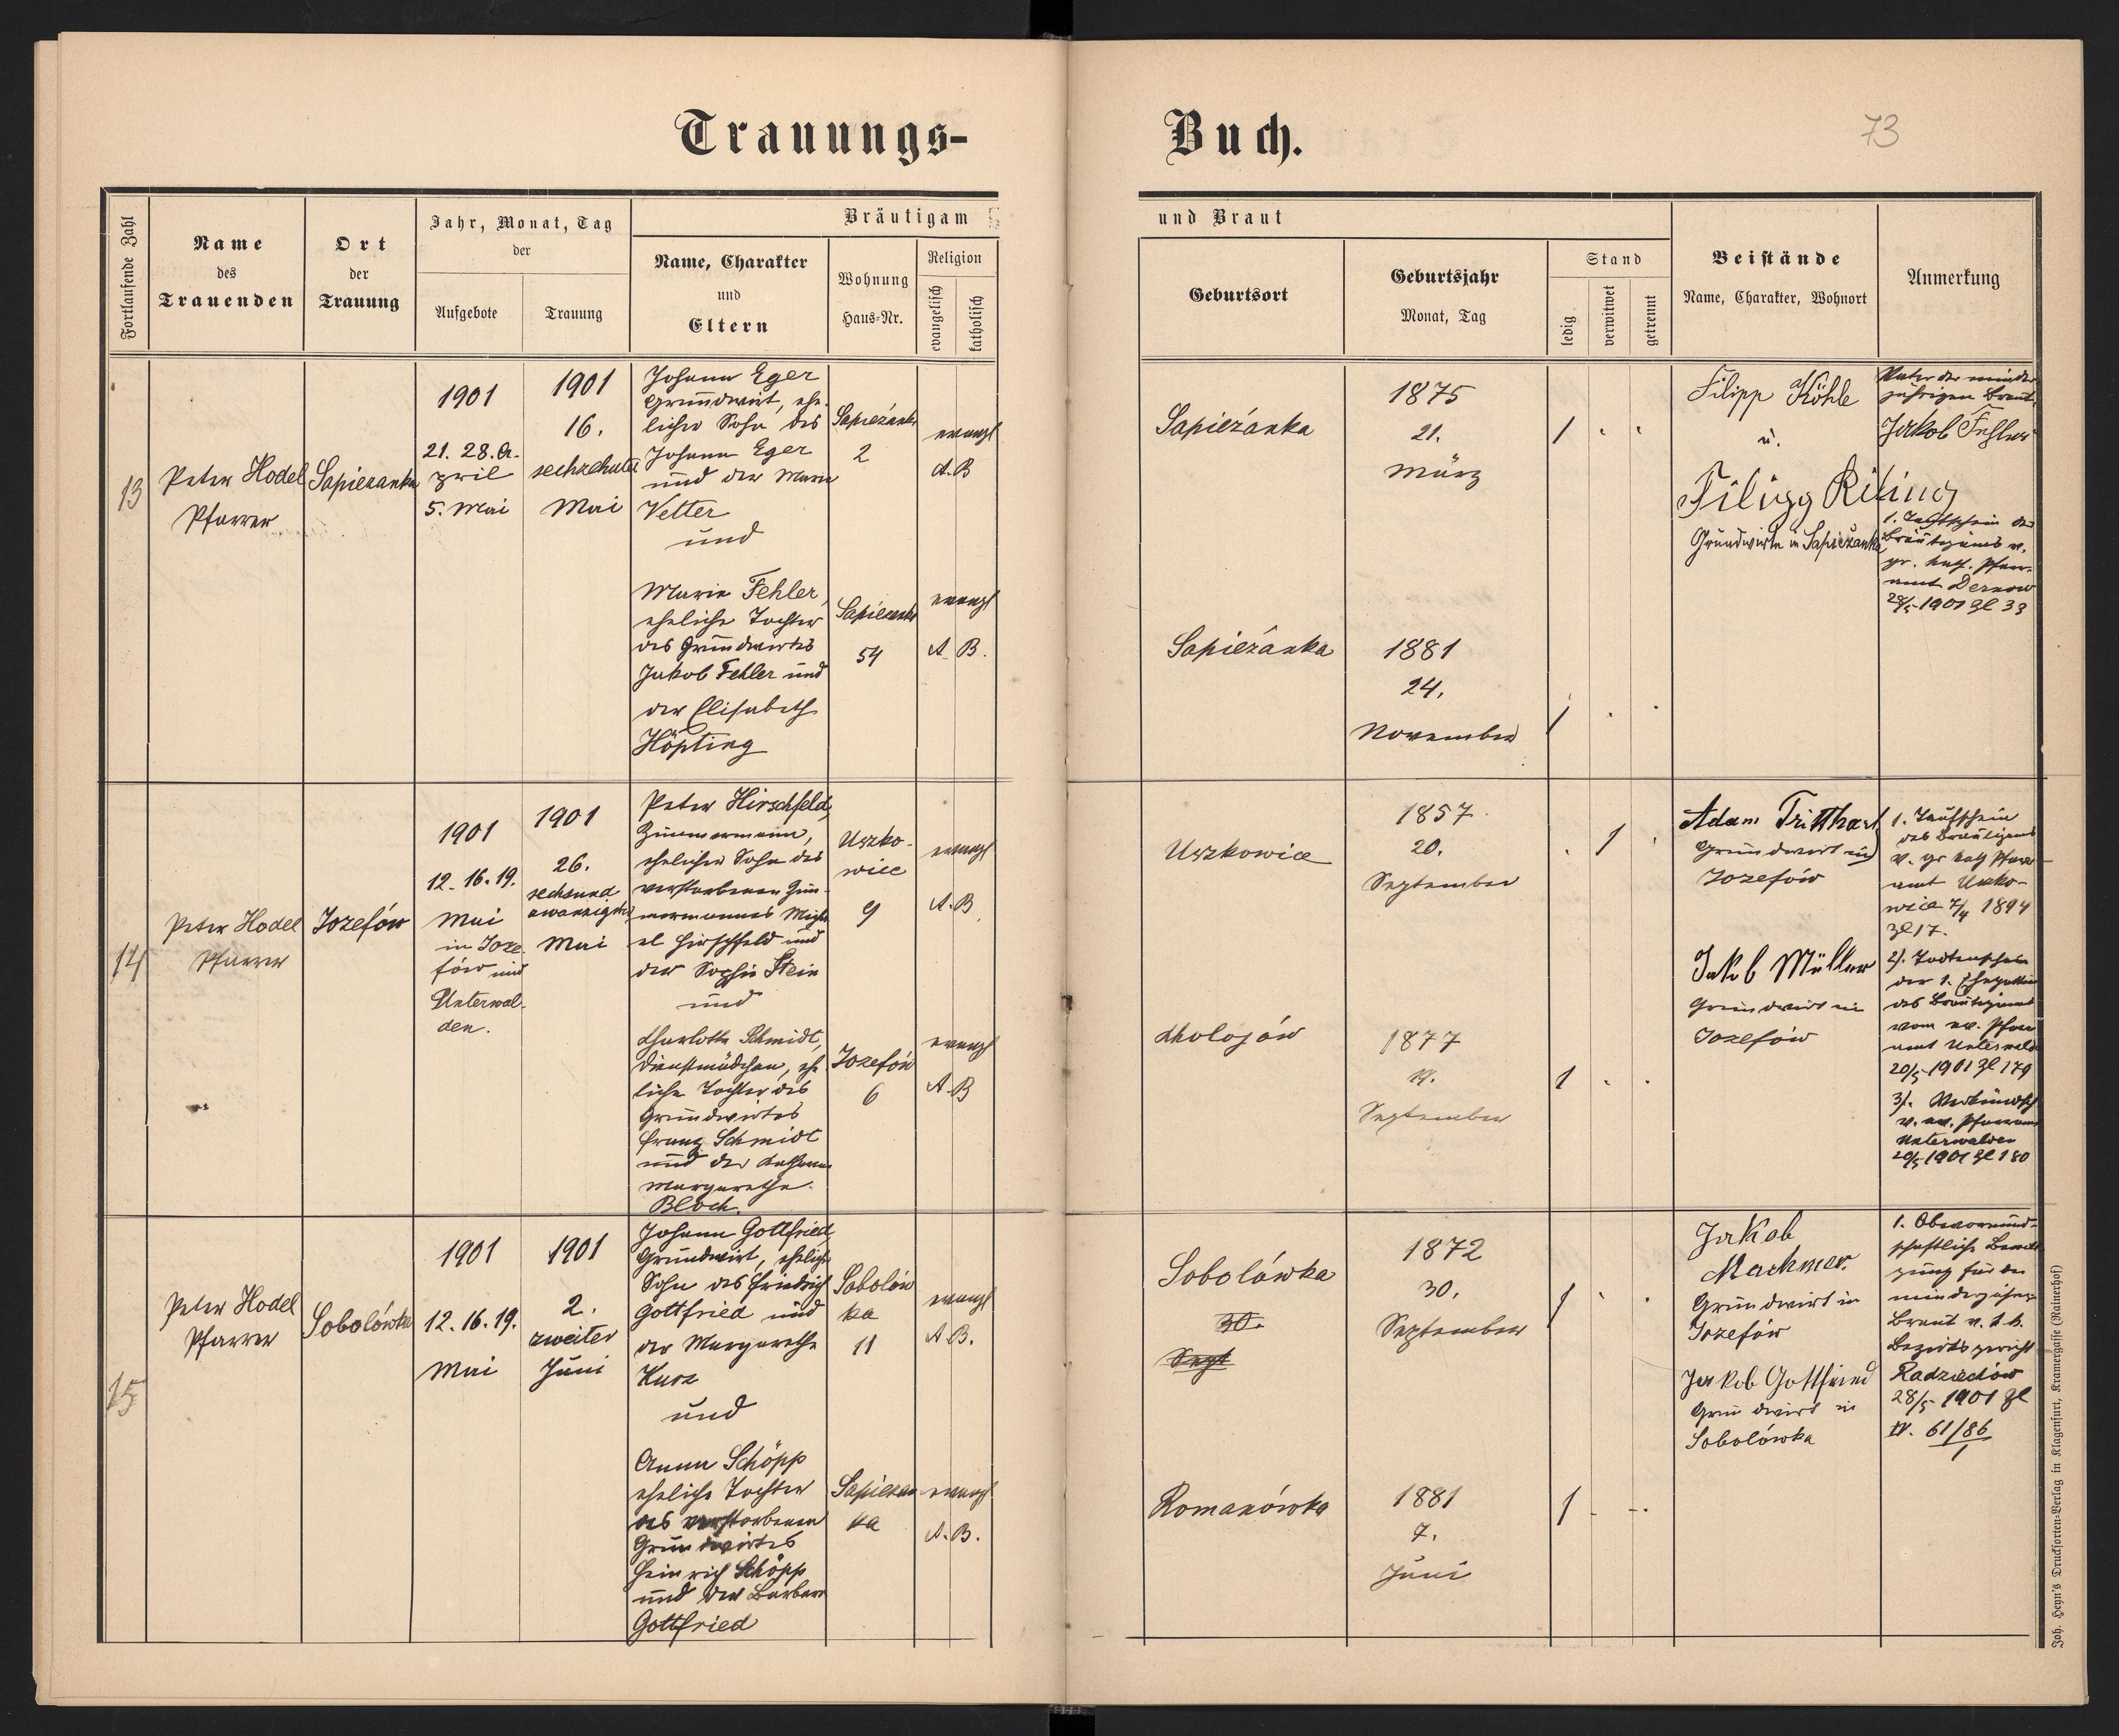 Trauungs-
Buch.
73
Fortlaufende Zahl
Name
des
Trauenden
Ort
der
Trauung
Jahr, Monat, Tag
der
Aufgebote
Trauung
Bräutigam
Name, Charakter
und
Eltern
Wohnung
Haus-Nr.
Religion
evangelisch
katholisch
und Braut
Geburtsort
Geburtsjahr
Monat, Tag
Stand
ledig
verwitwet
getrennt
Beistände
Name, Charakter, Wohnort
Anmerkung
13
Peter Hodel
Pfarrer
Sapiezanka
1901
21. 28. A-
pril
5. Mai
1901
16.
sechzehnter
Mai
Johann Eger
Grundwirt, ehe-
licher Sohn des
Johann Eger
und der Marie
Vetter
und
Marie Fehler,
eheliche Tochter
des Grundwirtes
Jakob Fehler und
der Elisabeth
Höpting
Sapiezanka
2
evangl
A.B
Sapiezanka
54
evangl
A. B.
Sapiezánka
1875
21.
März
1
Sapiezánka
1881
24.
November
1
Filipp Köhle
u.
Filipp Riling
Grundwirte in Sapiezanka
Vater der minder-
jährigen Braut,
Jakob Fehler
1. Taufschein des
Bräutigams v.
gr. kath. Pfarr-
amt Dernow
28/5 1901 Zl 39
14
Peter Hodel
Pfarrer
Jozefów
1901
12. 16. 19.
Mai
in Joze-
fów und
Unterwal-
den.
1901
26.
sechsund
zwanzigster
Mai
Peter Hirschfeld,
Zimmermann,
ehelicher Sohn des
verstorbenen Zim-
mermannes Micha-
el Hirschfeld und
der Sophie Stein
und
Charlotte Schmidt,
Dienstmädchen, ehe-
liche Tochter des
Grundwirtes
Franz Schmidt
und der
Margarethe
Bloch.
Uszko-
wice
9
evangl
A.B
Jozefów
6
evangl
A.B
Uszkowice
1857
20.
September
1
Cholojów
1877
September
1
Adam Tritthart
Grundwirt in
Jozefów
Jakob Müller
Grundwirt in
Jozefów
1. Taufschein
des Bräutigams
v. gr kath Pfarr
amt Uszko-
wice 7/4 1894
Zl 17.
2). Todtenschein
der 1. Ehegattin
des Bräutigams
vom ev. Pfarr
amt Unterwald
20/5 1901 Zl 179
3). Verkündsch
v. ev. Pfarramt
Unterwalden
20/5 1901 Zl 180
15
Peter Hodel
Pfarrer
Sobolówka
1901
12. 16. 19.
Mai
1901
2.
zweiter
Juni
Johann Gottfried,
Grundwirt, ehelicher
Sohn des Friedrich
Gottfried und
der Margarethe
Kurz
und
Anna Schöpp
eheliche Tochter
des verstorbenen
Grundwirtes
Heinrich Schöpp
und der Barbara
Gottfried
Sobolów
ka
11
evangl
A B.
Sapiezan
ka
evangl
A. B.
Sobolówka
30.
Sept
1872
30.
September
1
Romanówka
1881
7.
Juni
1
Jakob
Machmer
Grundwirt in
Jozefów
Jakob Gottfried
Grundwirt in
Sobolówka
1. Obervormund-
schaftliche Bewilli
gung für die
minderjährige
Braut v. k. k.
Bezirksgericht
Radziechów
28/5 1901 Zl
IV. 61/86
1
Joh. Heyn's Drucksorten-Verlag in Klagenfurt, Kramergasse (Rainerhof)